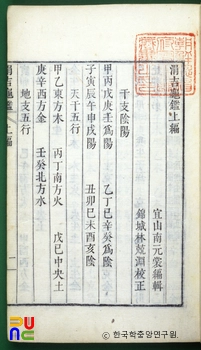 涓吉龜鑑上編
宜山南元裳編輯
錦城林兢淵校正
干支陰陽
甲丙戊庚壬爲陽 乙丁己辛癸爲陰
子寅辰午申戌陽 丑卯巳未酉亥陰
天干五行
甲乙東方木 丙丁南方火 戊己中央土
庚辛西方金 壬癸北方水
地支五行
涓吉龜鑑 上編 一
ⓒ 한국학중앙연구원